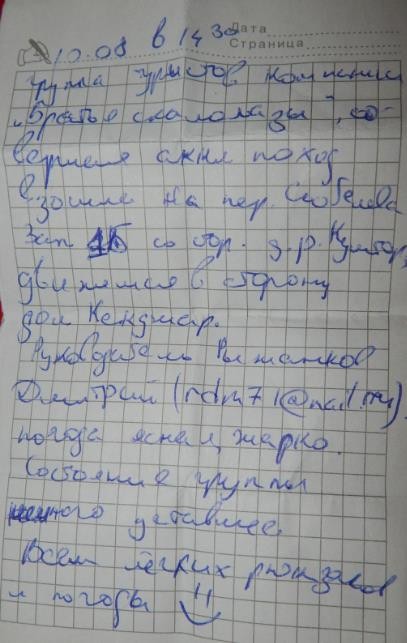 Дата
Страница
10.08 в 14 30
группа туристов компании
"Братья скалолазы", со-
вершая аккл поход
взошла на пер. Скобелева
Зап 1Б со стор. д.р. Кумтор,
движемся в сторону
дол Кенджар.
Руководитель
Дмитрий (rdm71@mail.ru).
погода ясная, жарко.
Состояние группы
немного уставшее.
Всем лёгких рюкзаков
и погоды !!